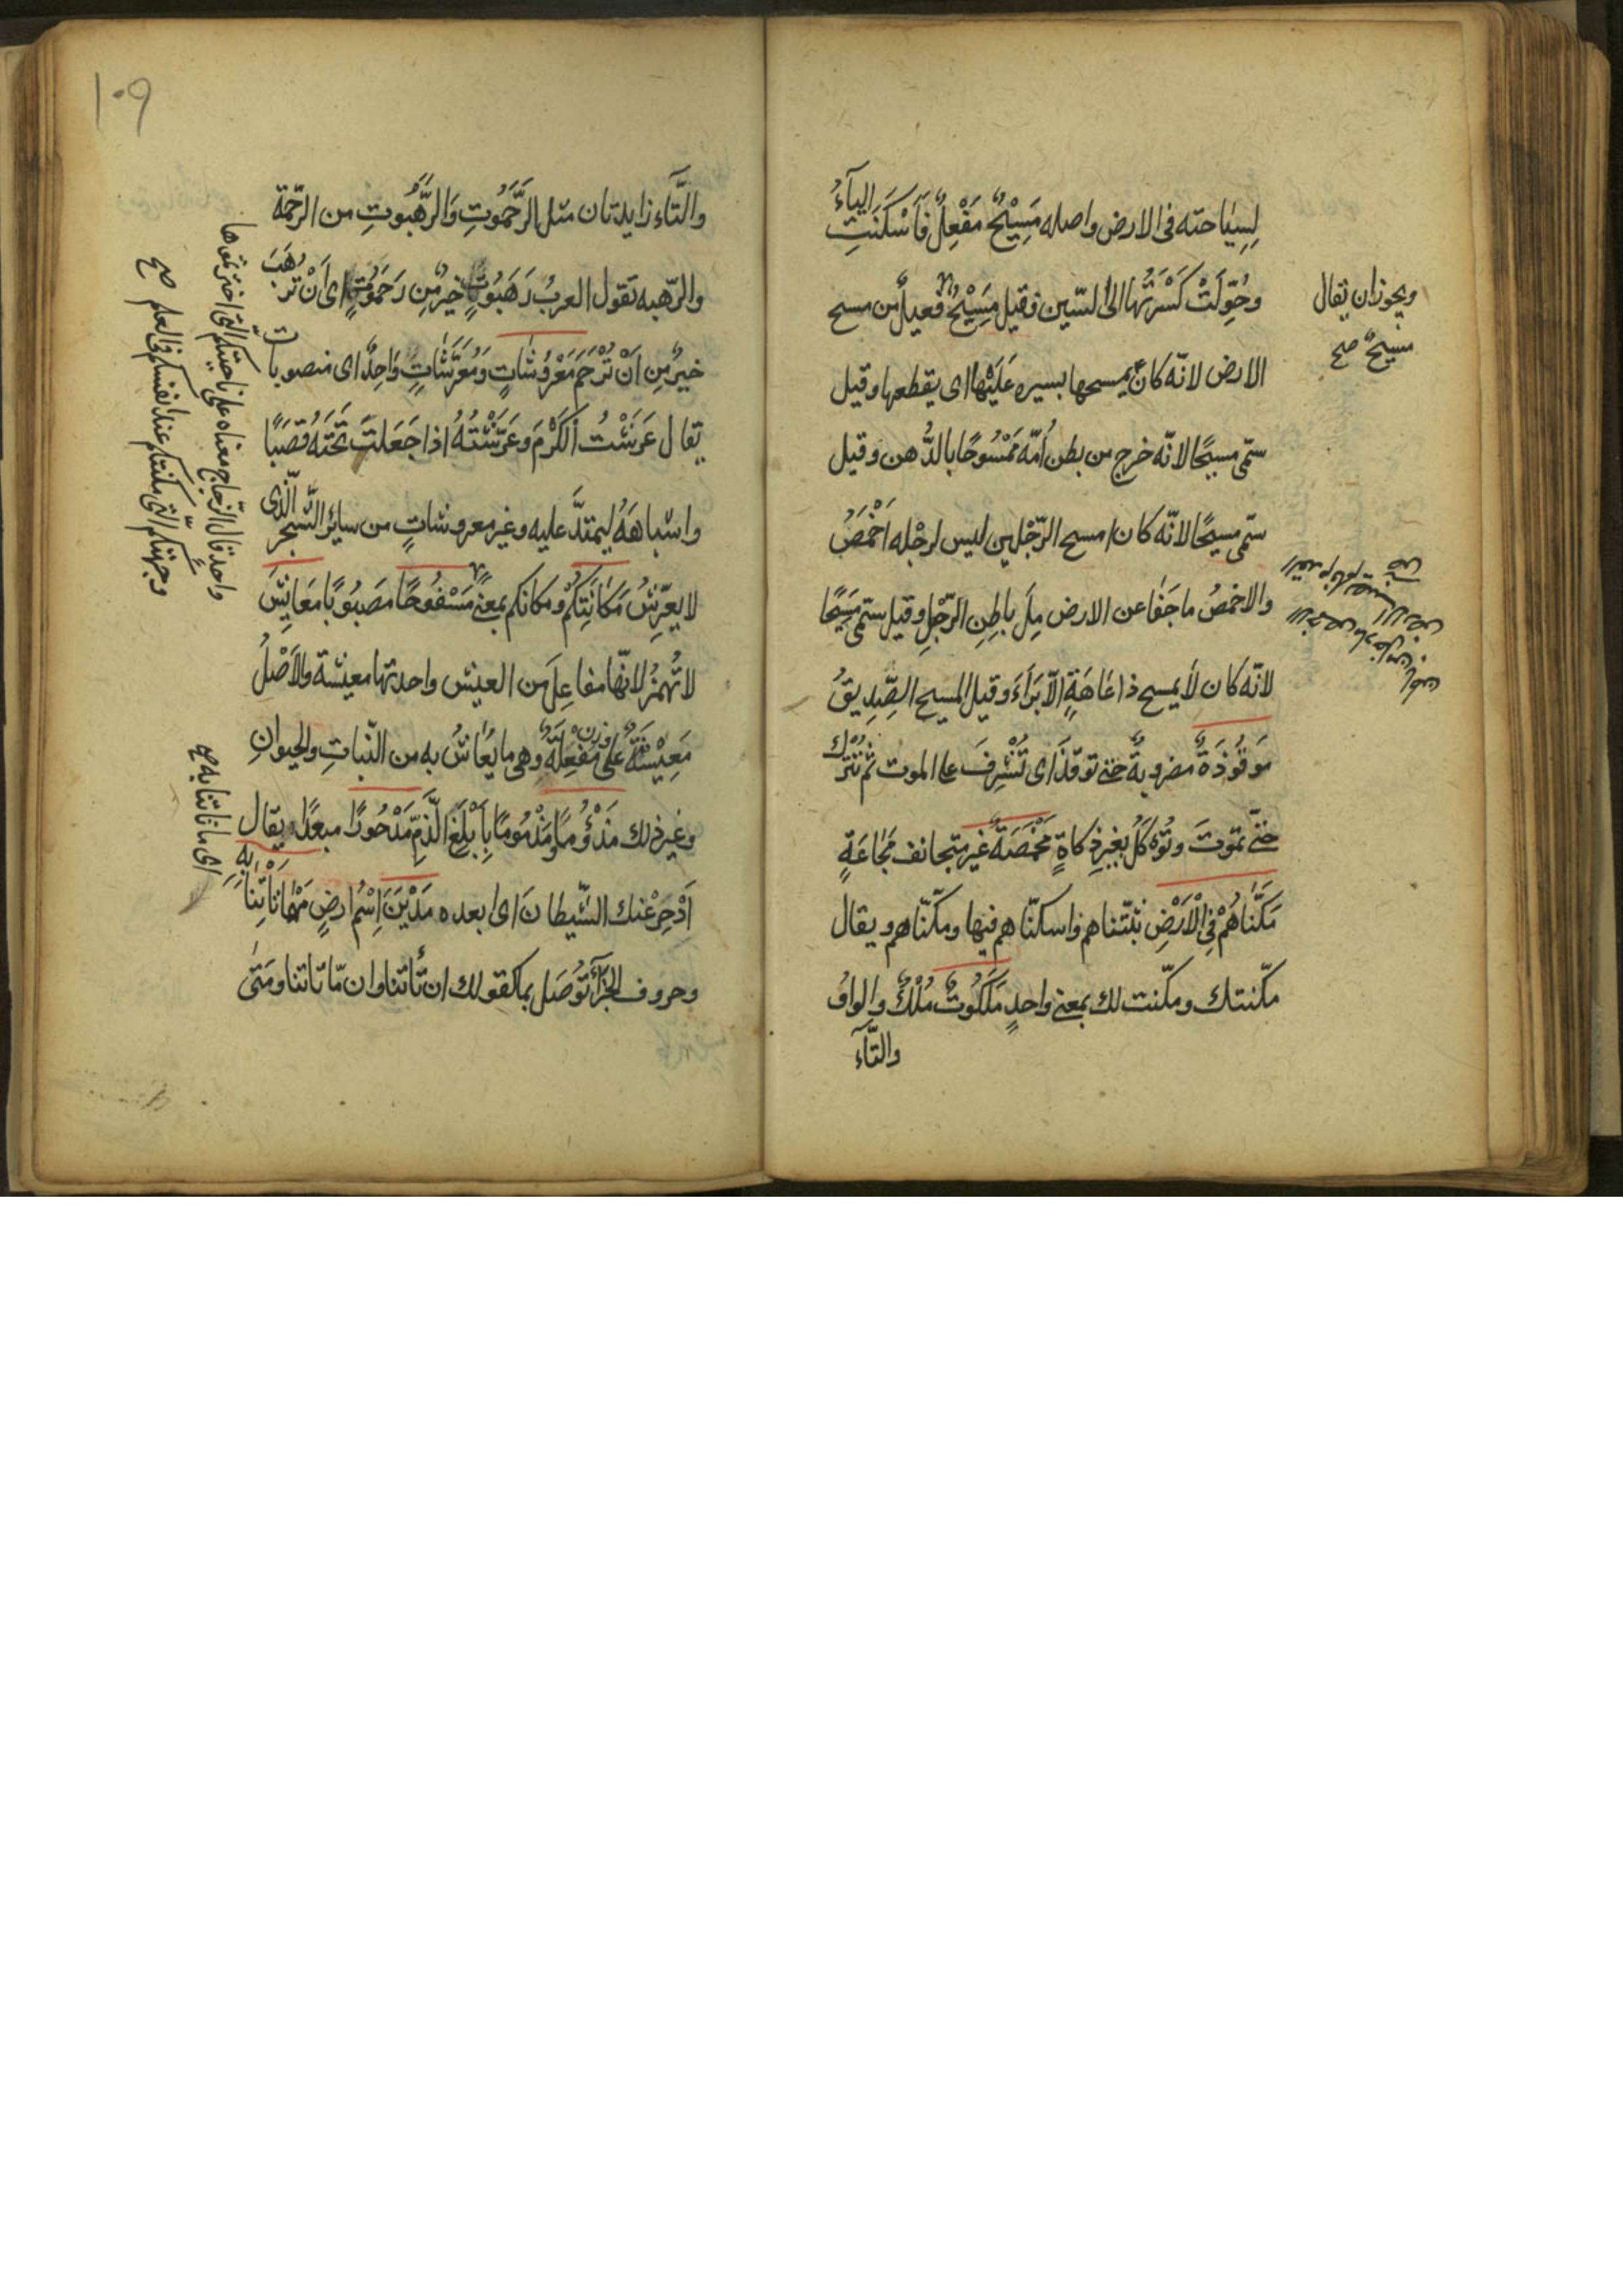 لِسِيَاحته فى الارض واصله مَسْيِحٌ مَفْعِلٌ فَاَسْكَنَتِ الياءُ
وحُوِّلَتْ كَسْرَتُها الى السّين وقيل مَسِيْحٌ فَعيلٌ من مسح
الارض لانّه كان يمسحها بسيره عَلَيْها اى يقطعها وقيل
سمّى مسيحًا لانّه خرج من بطن اُمّه مَمْسُوحًا بالدُّهن وقيل
سمّى مسيحًا لانّه كان امسح الرّجْلين ليس لرجْله اَخْمَصُ
والاخمصُ ما جَفٰا عن الارض مِنْ باطِنِ الرّجْلِ وقيل سمّى مَسِيحًا
لانّه كان لا يمسح ذا عَاهَةٍ الّا بَرَاءَ وقيل المسيح الصِّدِيقُ
مَوقُوذَةٌ مضروبةٌ حتى توقذَ اى تُشْرِفَ على الموت ثم تُتْرك
حتّى تموتَ وتُوكَلُ بغيرِ ذكاةٍ مَخْمَصَةٌ غير متجانف مَجٰاعَةٍ
مَكَّنّاهُمْ فِى الْاَرْضِ ثبّتناهم واسكنّاهم فيها ومكنّاهم ويقال
مكّنتك ومكّنت لك بمعنى واحدٍ مَلَكُوتٌ مُلْكٌ والواوُ
والتّآء
ويجوز ان يقال
مسيحٌ صح
١٠٩
والتَّاء زايدتان مثل الرَّحَمُوتِ وَالرَّهَبُوتِ من الرّحمة
والرّهبه تقول العربُ رَهَبُوتٌ خيرٌ مِن رَحَمُوتٍ اى اَنْ تُرْهَبَ
خيرٌ مِن اَنْ تُرْحَمَ مَعْرُوشَاتٍ وَمُعَرَّشَاتٍ وَاحِدٌ اى منصوبات
يقال عَرَشْتُ الكَرْمَ وعَرّشْتُهُ اذا جَعَلتَ تَحتَهُ قَصَبًا
واشباهَهُ ليمتدَّ عليه وغير معروشاتٍ من سائر الشّجر الّذى
لا يعرِّشُ مَكَانَتِكُمْ ومكانكم بمعنى مَسْفُوحًا مَصبُوبًا مَعَايِشَ
لا تُهمزُ لانّها مفاعِلَ من العيش واحدتها معيشة والاَصْلُ
مَعِيْشَةٌ على وزن مَفْعِلَةٍ وهى ما يُعَاشُ به من النّباتِ والحيوانِ
وغير ذلك مَذْؤُمًا مَذْمُومًا بِاَبْلَغِ الذَّمِّ مَدْحُورًا مبعدًا يقال
اَدْحِرْ عْنك الشّيطانَ اى ابعده مَدْيَنَ اِسْمُ ارضٍ مَهْمَا تَاْتِنَا بِهِ
وحروف الجزآءِ تُوصَل بما كقولك ان تأتنا وان مّا تاتنا ومَتٰى
واحد قال الزّجاج معناه على ناحيتكم الّتى اخترتموها
وجهتكم الّتى مكنتكم عند انفسكم فى العلم صح
اى ما تاتنا به صح